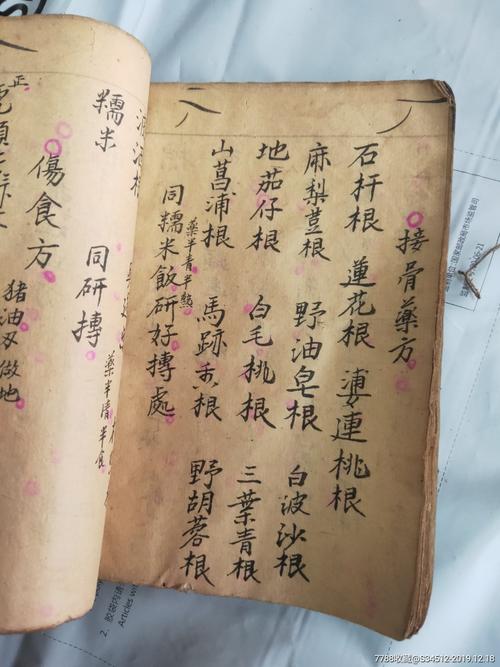 接骨藥方
石杆根 蓮花根 婆連桃根
麻梨荳根 野油皂根 白波沙根
地茄仔根 白毛桃根 三葉青根
山菖蒲根 馬跡 根 野胡蓉根
藥半青半熟
同糯米飯研好摶處
糯米 同研摶
藥半清半食
傷食方
猪油 做地
正
2. 胶袋内请
Articles wi
7788收藏@S34512-2019.12.18